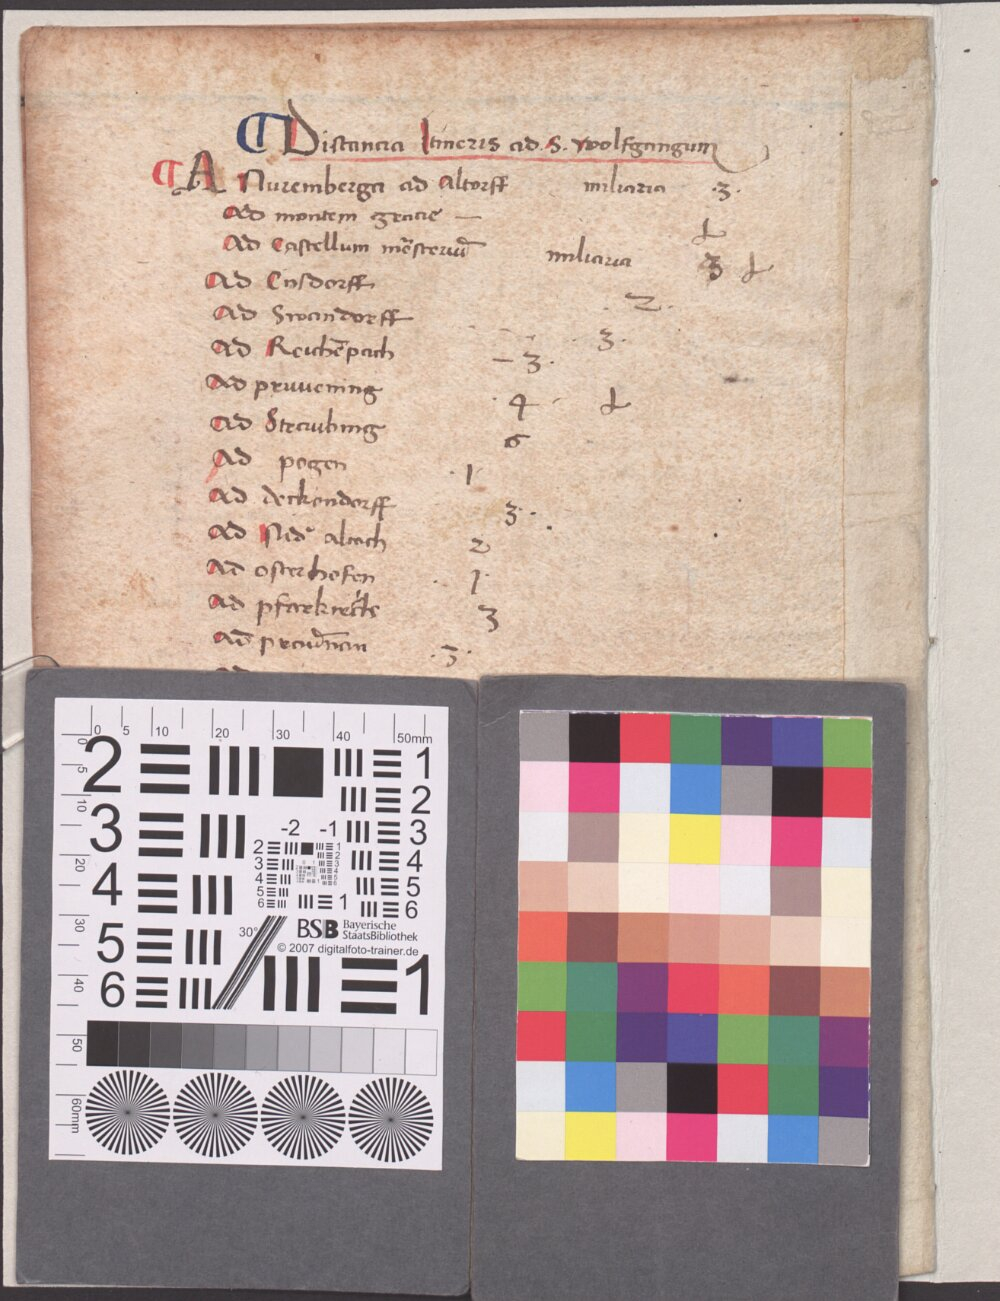 Distancia Itineris ad .S. wolfgangum
A Nuremberga ad Altorff miliaria .3.
Ad montem gracie —
Ad Castellum miliaria 3
Ad Ensdorff
Ad Swandorff 2.
Ad Reichēpach 3.
Ad pruuening 3.
Ad Straubing 4
Ad pogen 6
Ad deckendorff 1
Ad altach 3.
Ad osterhofen 2
Ad 1
Ad 3
.3.
0 5 10 20 30 40 50mm
0 5 10 20 30 40 50 60mm
2 3 4 5 6
1 2 3 4 5 6
-2 -1
2 3 4 5 6
1 2 3 4 5 6
1
30°
BSB Bayerische
StaatsBibliothek
© 2007 digitalfoto-trainer.de
1